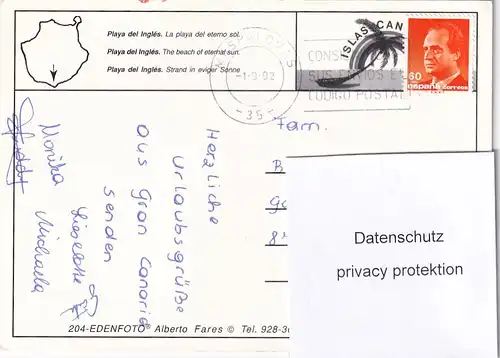 Playa del Inglés. La playa del eterno sol.
Playa del Inglés. The beach of eternal sun.
Playa del Inglés. Strand in eviger Sonne
ISLAS CAN
-1-9-92
-35-
CONS
SUS ENVIOS E
CODIGO POSTAL
60
españa correos
Fam.
B
Ga
8
Herzliche
Urlaubsgrüße
aus Gran Canaria
senden
Lieselotte
Monika
Michaela
Datenschutz
privacy protektion
204-EDENFOTO® Alberto Fares © Tel. 928-30